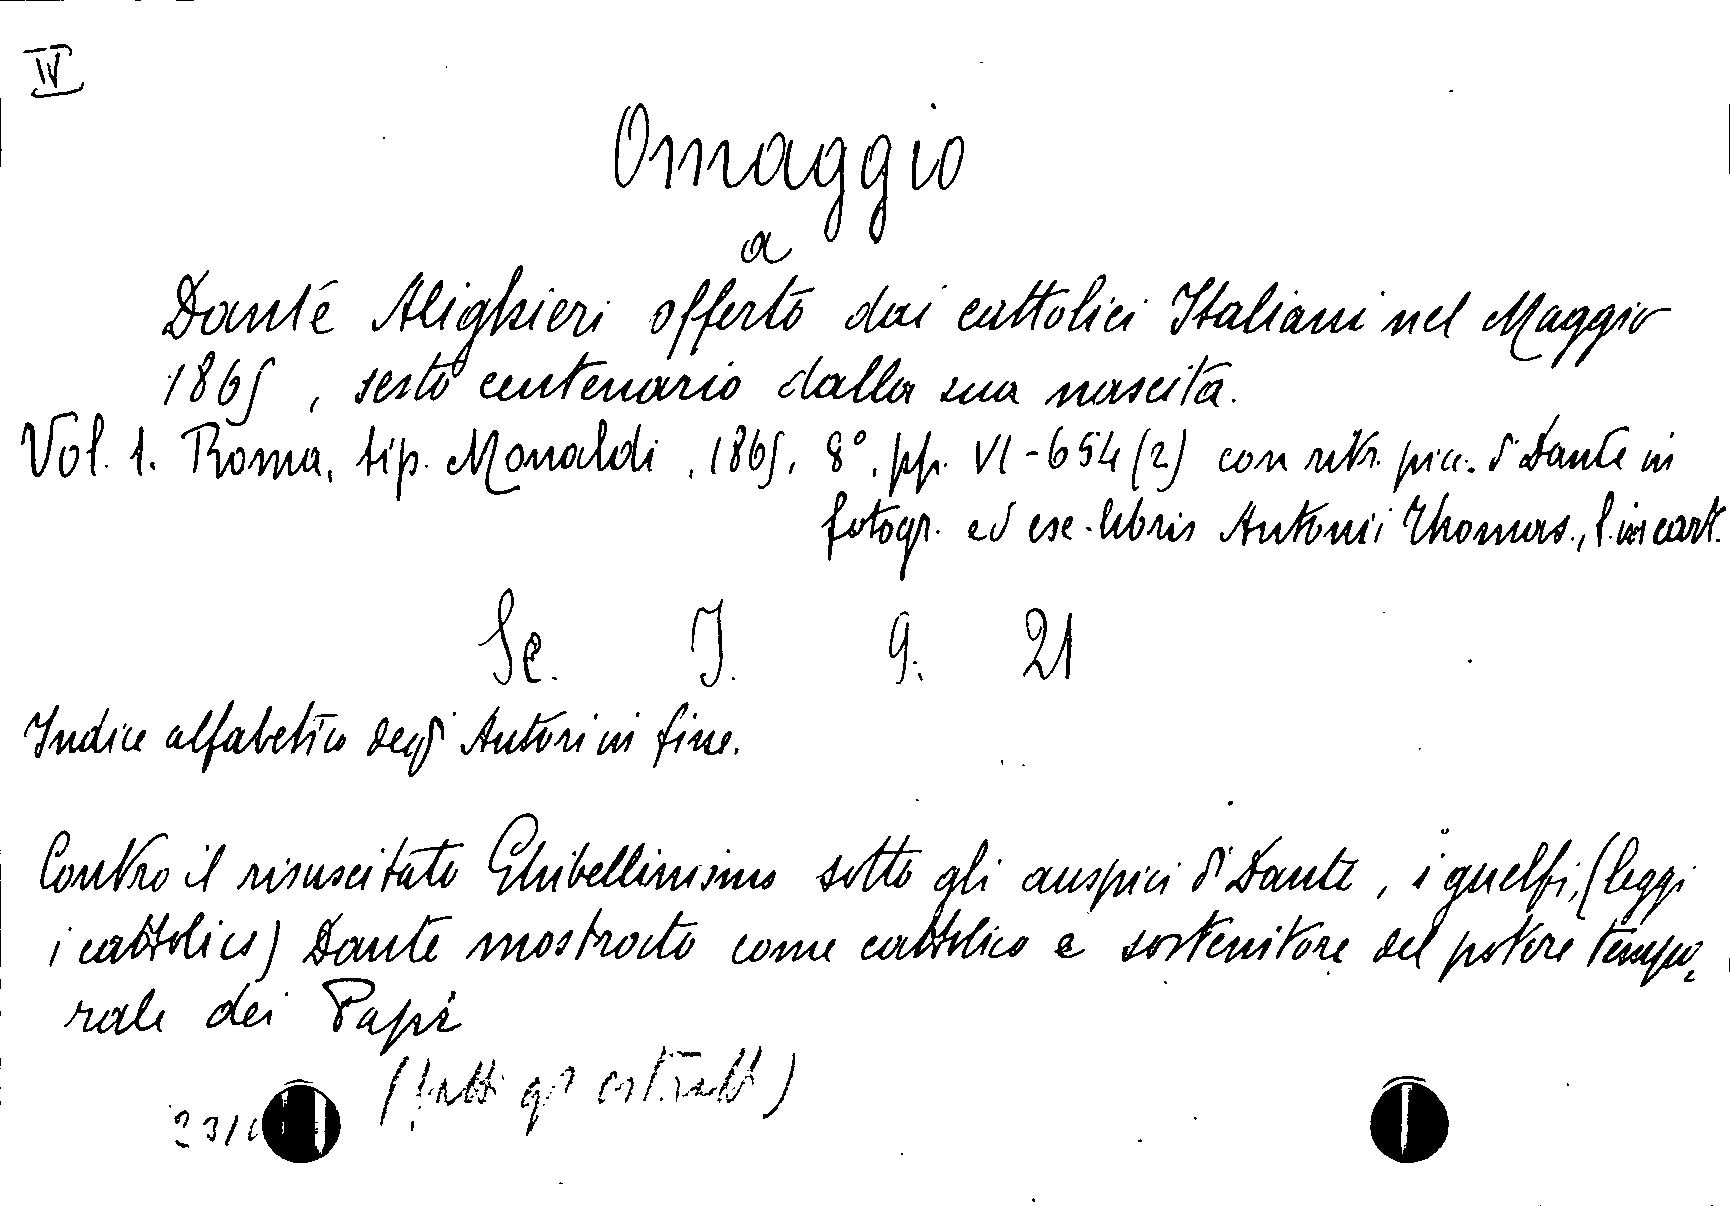 IV
Omaggio
a
Dante Alighieri offerto dai cattolici Italiani nel Maggio
1865, sesto centenario dalla sua nascita.
Vol. 1. Roma, tip. Monaldi, 1865, 8°, pp. VI-654 (2) con ritr. picc. di Dante in
fotogr. ed exe-libris Antonii Thomas., l. in cart.
Se. I. 9. 21
Indice alfabetico degli Autori in fine.
Contro il risuscitato Ghibellinismo sotto gli auspici di Dante, i guelfi, (leggi
i cattolici) Dante mostrato come cattolico e sostenitore del potere tempo=
rale dei Papi
(fatti gli estratti)